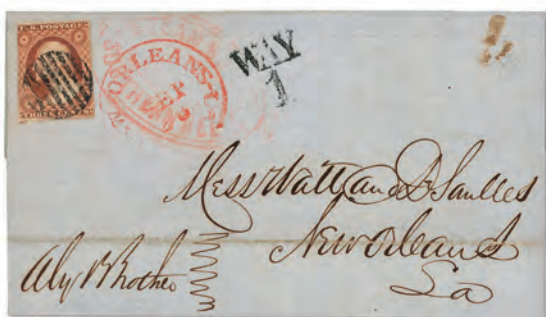 U.S. POSTAGE
THREE CENTS
N. ORLEANS. La
SEP
WAY
1
Messrs Watt and De Saulles
New Orleans
La
Aly Brother